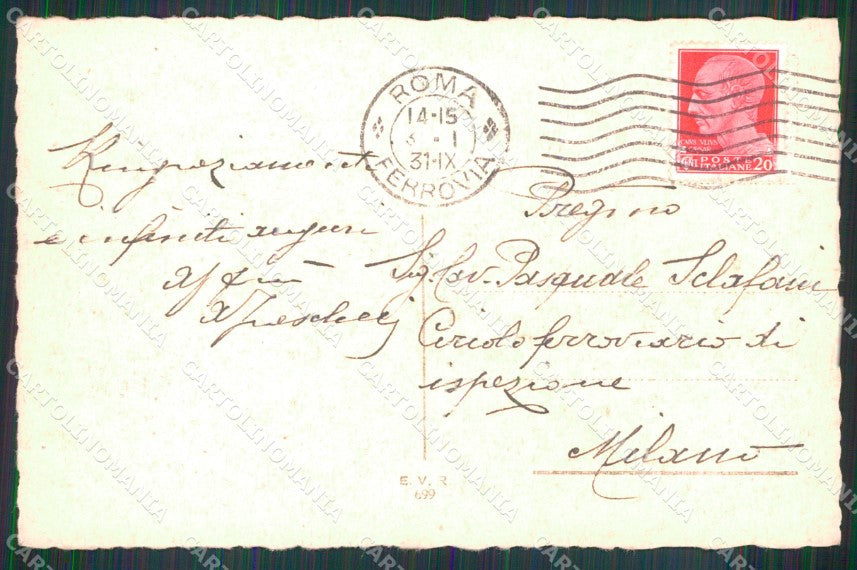 ROMA
14-15
31-IX
FERROVIA
POSTE
ITALIANE 20
Ringraziamenti
e infiniti auguri
Preg/mo
Sig. Cav. Pasquale Sclafani
Circolo ferroviario di
ispezione
Milano
E. V. R
699
CARTOLINOMANIA